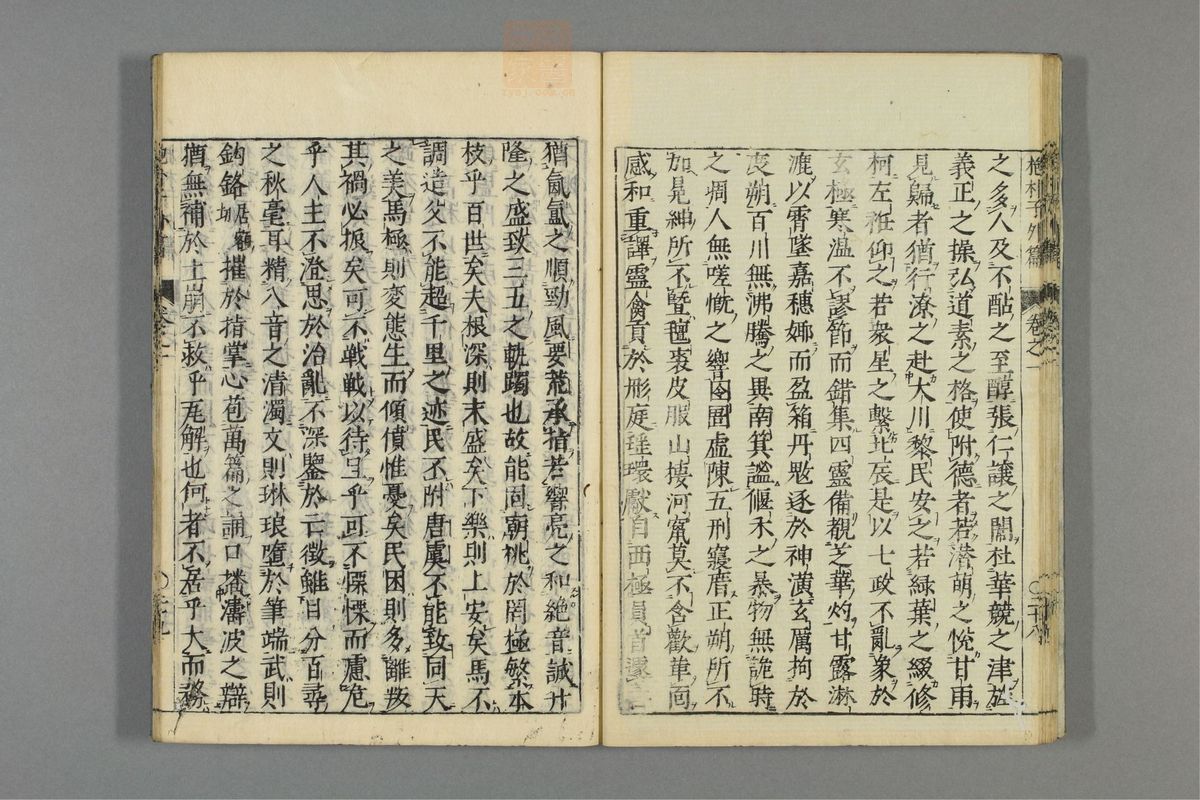 抱朴子外篇 卷之一 ○二十八
之多人及不酤之至醇張仁讓之闈杜華競之津於
義正之操弘道素之格使附德者若潛萌之悅甘雨
見歸者猶行潦之赴大川黎民安之若綠葉之綴修
柯左衽仰之若衆星之繫北辰是以七政不亂象於
玄極寒温不謬節而錯集四靈備覿芝華灼甘露淋
漉以霄墜嘉穗婀而盈箱丹魃逐於神潢玄厲拘於
庋朔百川無沸騰之異南箕謐偃禾之暴物無詭時
之凋人無嗟慨之響囹圄虛陳五刑寢厝正朔所不
加冕紳所不曁氊裘皮服山棲河窟莫不含歡革面
感和重譯靈禽貢於彤庭瑤環獻自西極員首遽
猶氤氳之順勁風要荒承指若響亮之和絶音誠升
隆之盛致三五之軌躅也故能固廟祧於罔極繁本
枝乎百世矣夫根深則末盛矣下樂則上安矣馬不
調造父不能超千里之迹民不附唐虞不能致同天
之美馬極則変態生而傾僨惟憂矣民困則多離叛
其禍必振矣可不戰戰以待旦乎可不慄慄而慮危
乎人主不澄思於治亂不深鑒於亡徵雖目分百尋
之秋毫耳精八音之清濁文則琳琅墮於筆端武則
鈎鉻居額切摧於指掌心苞萬篇之誦口播濤波之辯
猶無補於土崩不救乎瓦解也何者不居乎大而務
卷之一 ○二十九